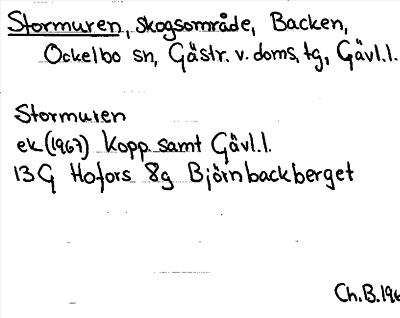 Stormuren, skogsområde, Backen,
Ockelbo sn, Gästr. v. doms. tg, Gävl.l.
Stormuren
ek (1967) Kopp. samt Gävl.l.
13G Hofors 8g Björnbackberget
Ch.B.196